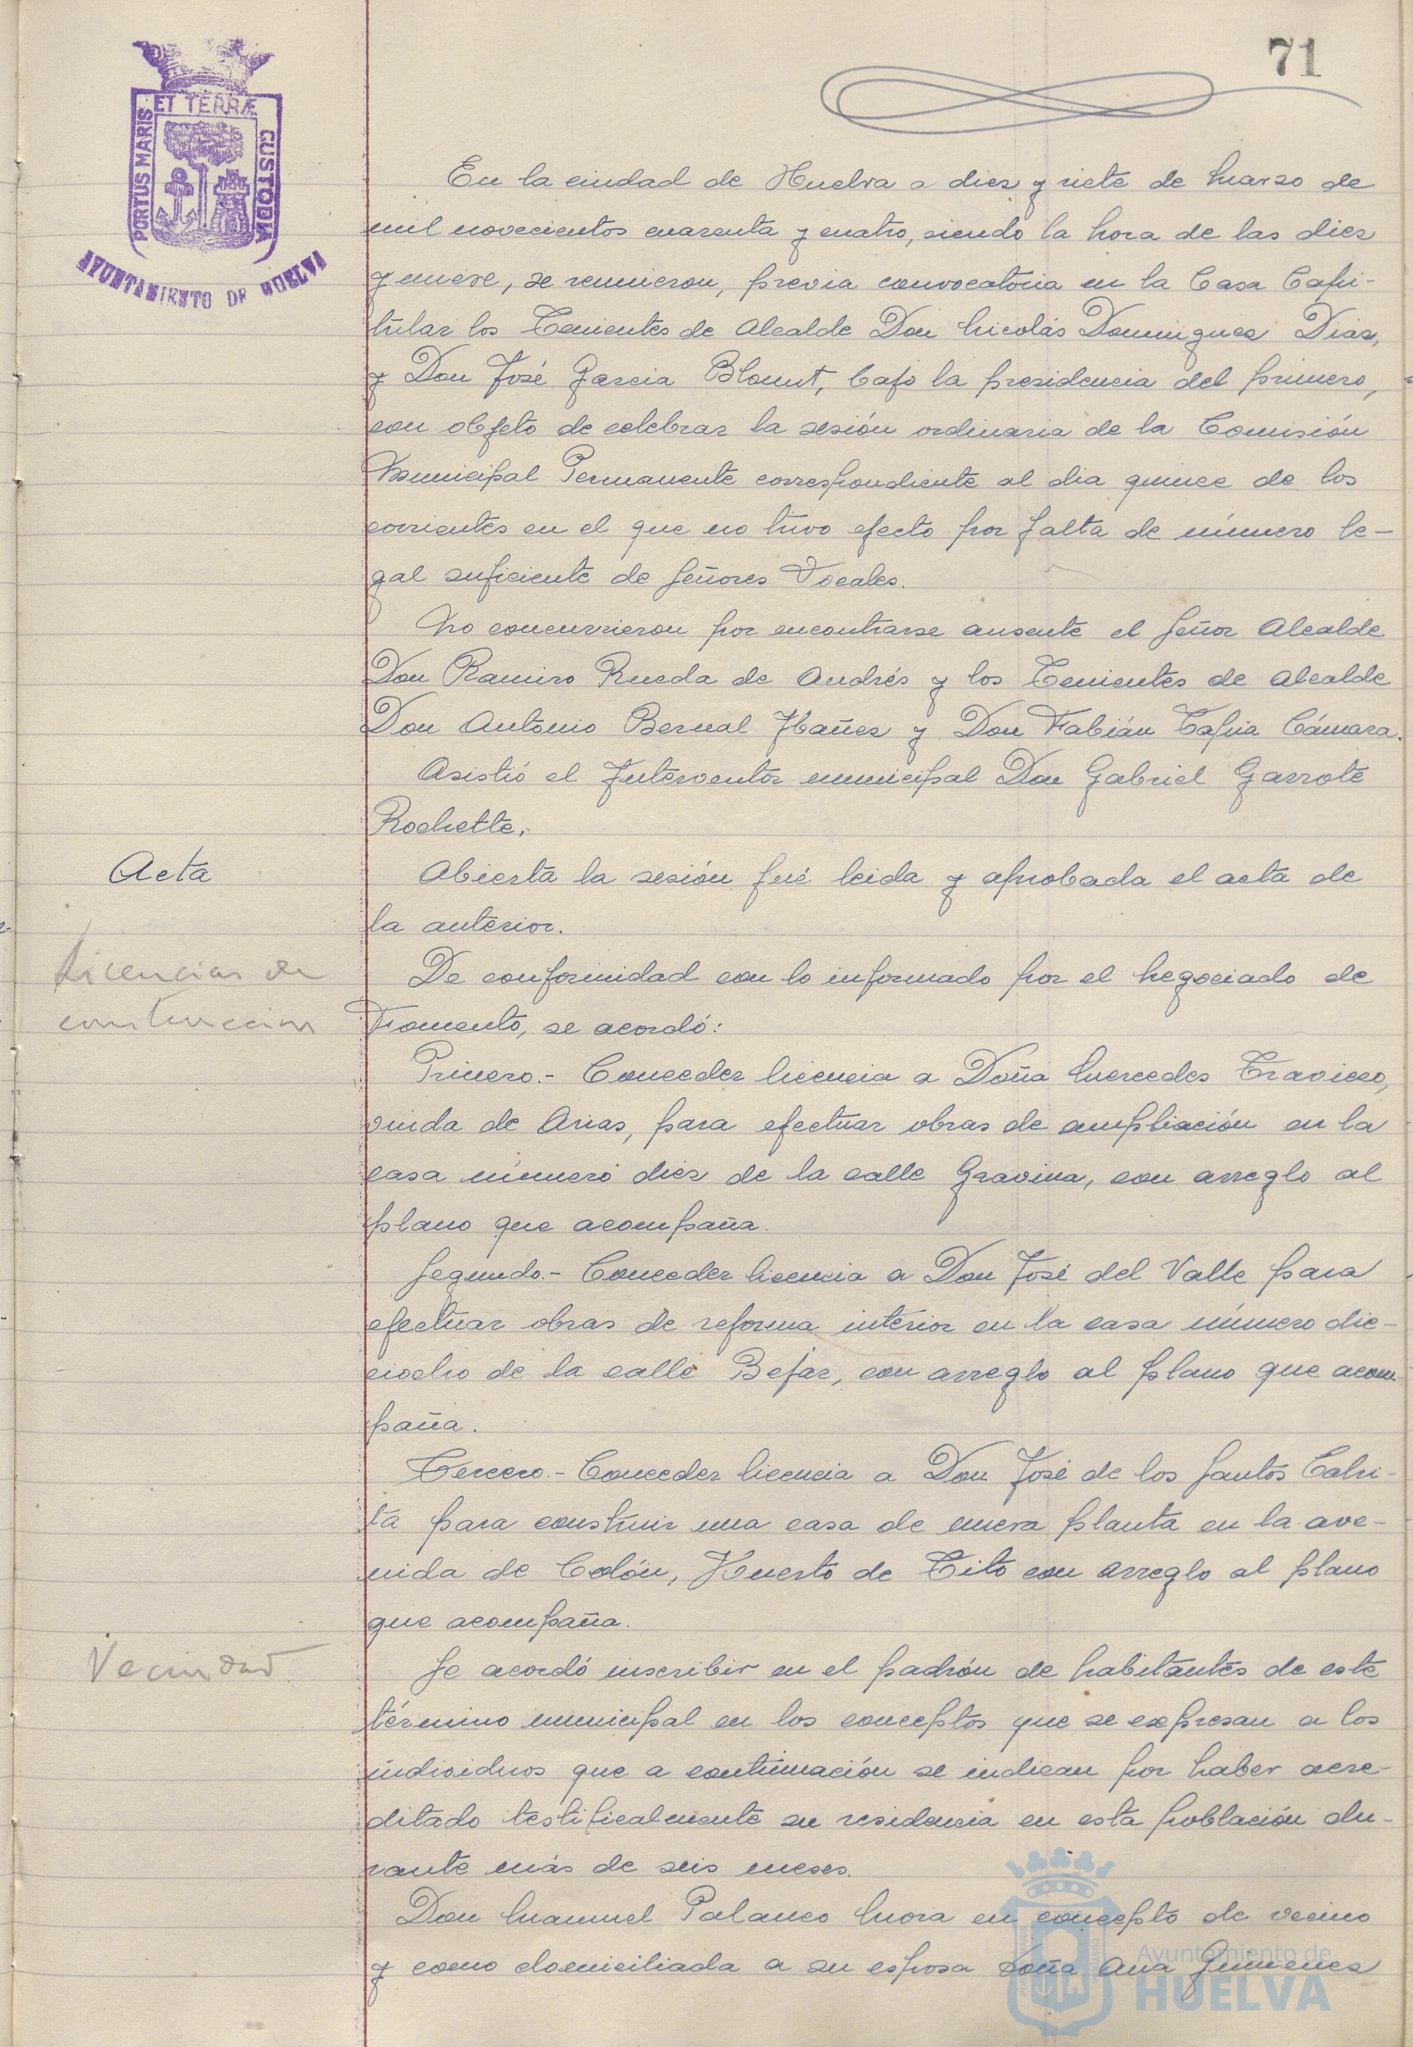 71
ET TERRÆ
PORTUS MARIS
CUSTODIA
AYUNTAMIENTO DE HUELVA
En la ciudad de Huelva a diez y siete de Marzo de
mil novecientos cuarenta y cuatro, siendo la hora de las diez
y nueve, se reunieron, previa convocatoria en la Casa Capi-
tular los Tenientes de Alcalde Don Nicolás Dominguez Diaz,
y Don José Garcia Blount, bajo la presidencia del primero,
con objeto de celebrar la sesión ordinaria de la Comisión
Municipal Permanente correspondiente al dia quince de los
corrientes en el que no tuvo efecto por falta de número le-
gal suficiente de Señores Vocales.
No concurrieron por encontrarse ausente el Señor Alcalde
Don Ramiro Rueda de Andrés y los Tenientes de Alcalde
Don Antonio Bernal Ybañez y Don Fabián Tapia Cámara.
Asistió el Interventor municipal Don Gabriel Garrote
Rochette.
Acta
Abierta la sesión fué leida y aprobada el acta de
la anterior.
Licencias de
construccion
De conformidad con lo informado por el Negociado de
Fomento, se acordó:
Primero.- Conceder licencia a Doña Mercedes Travieso,
viuda de Arias, para efectuar obras de ampliación en la
casa número diez de la calle Gravina, con arreglo al
plano que acompaña.
Segundo.- Conceder licencia a Don José del Valle para
efectuar obras de reforma interior en la casa número die-
ciocho de la calle Bejar, con arreglo al plano que acom-
paña.
Tercero.- Conceder licencia a Don José de los Santos Cabi-
ta para construir una casa de nueva planta en la ave-
nida de Colón, Huerto de Tito con arreglo al plano
que acompaña.
Vecindad
Se acordó inscribir en el padrón de habitantes de este
término municipal en los conceptos que se expresan a los
individuos que a continuación se indican por haber acre-
ditado testificalmente su residencia en esta población du-
rante más de seis meses.
Don Manuel Palanco Mora en concepto de vecino
y como domiciliada a su esposa Doña Ana Gimenez
Ayuntamiento de
HUELVA